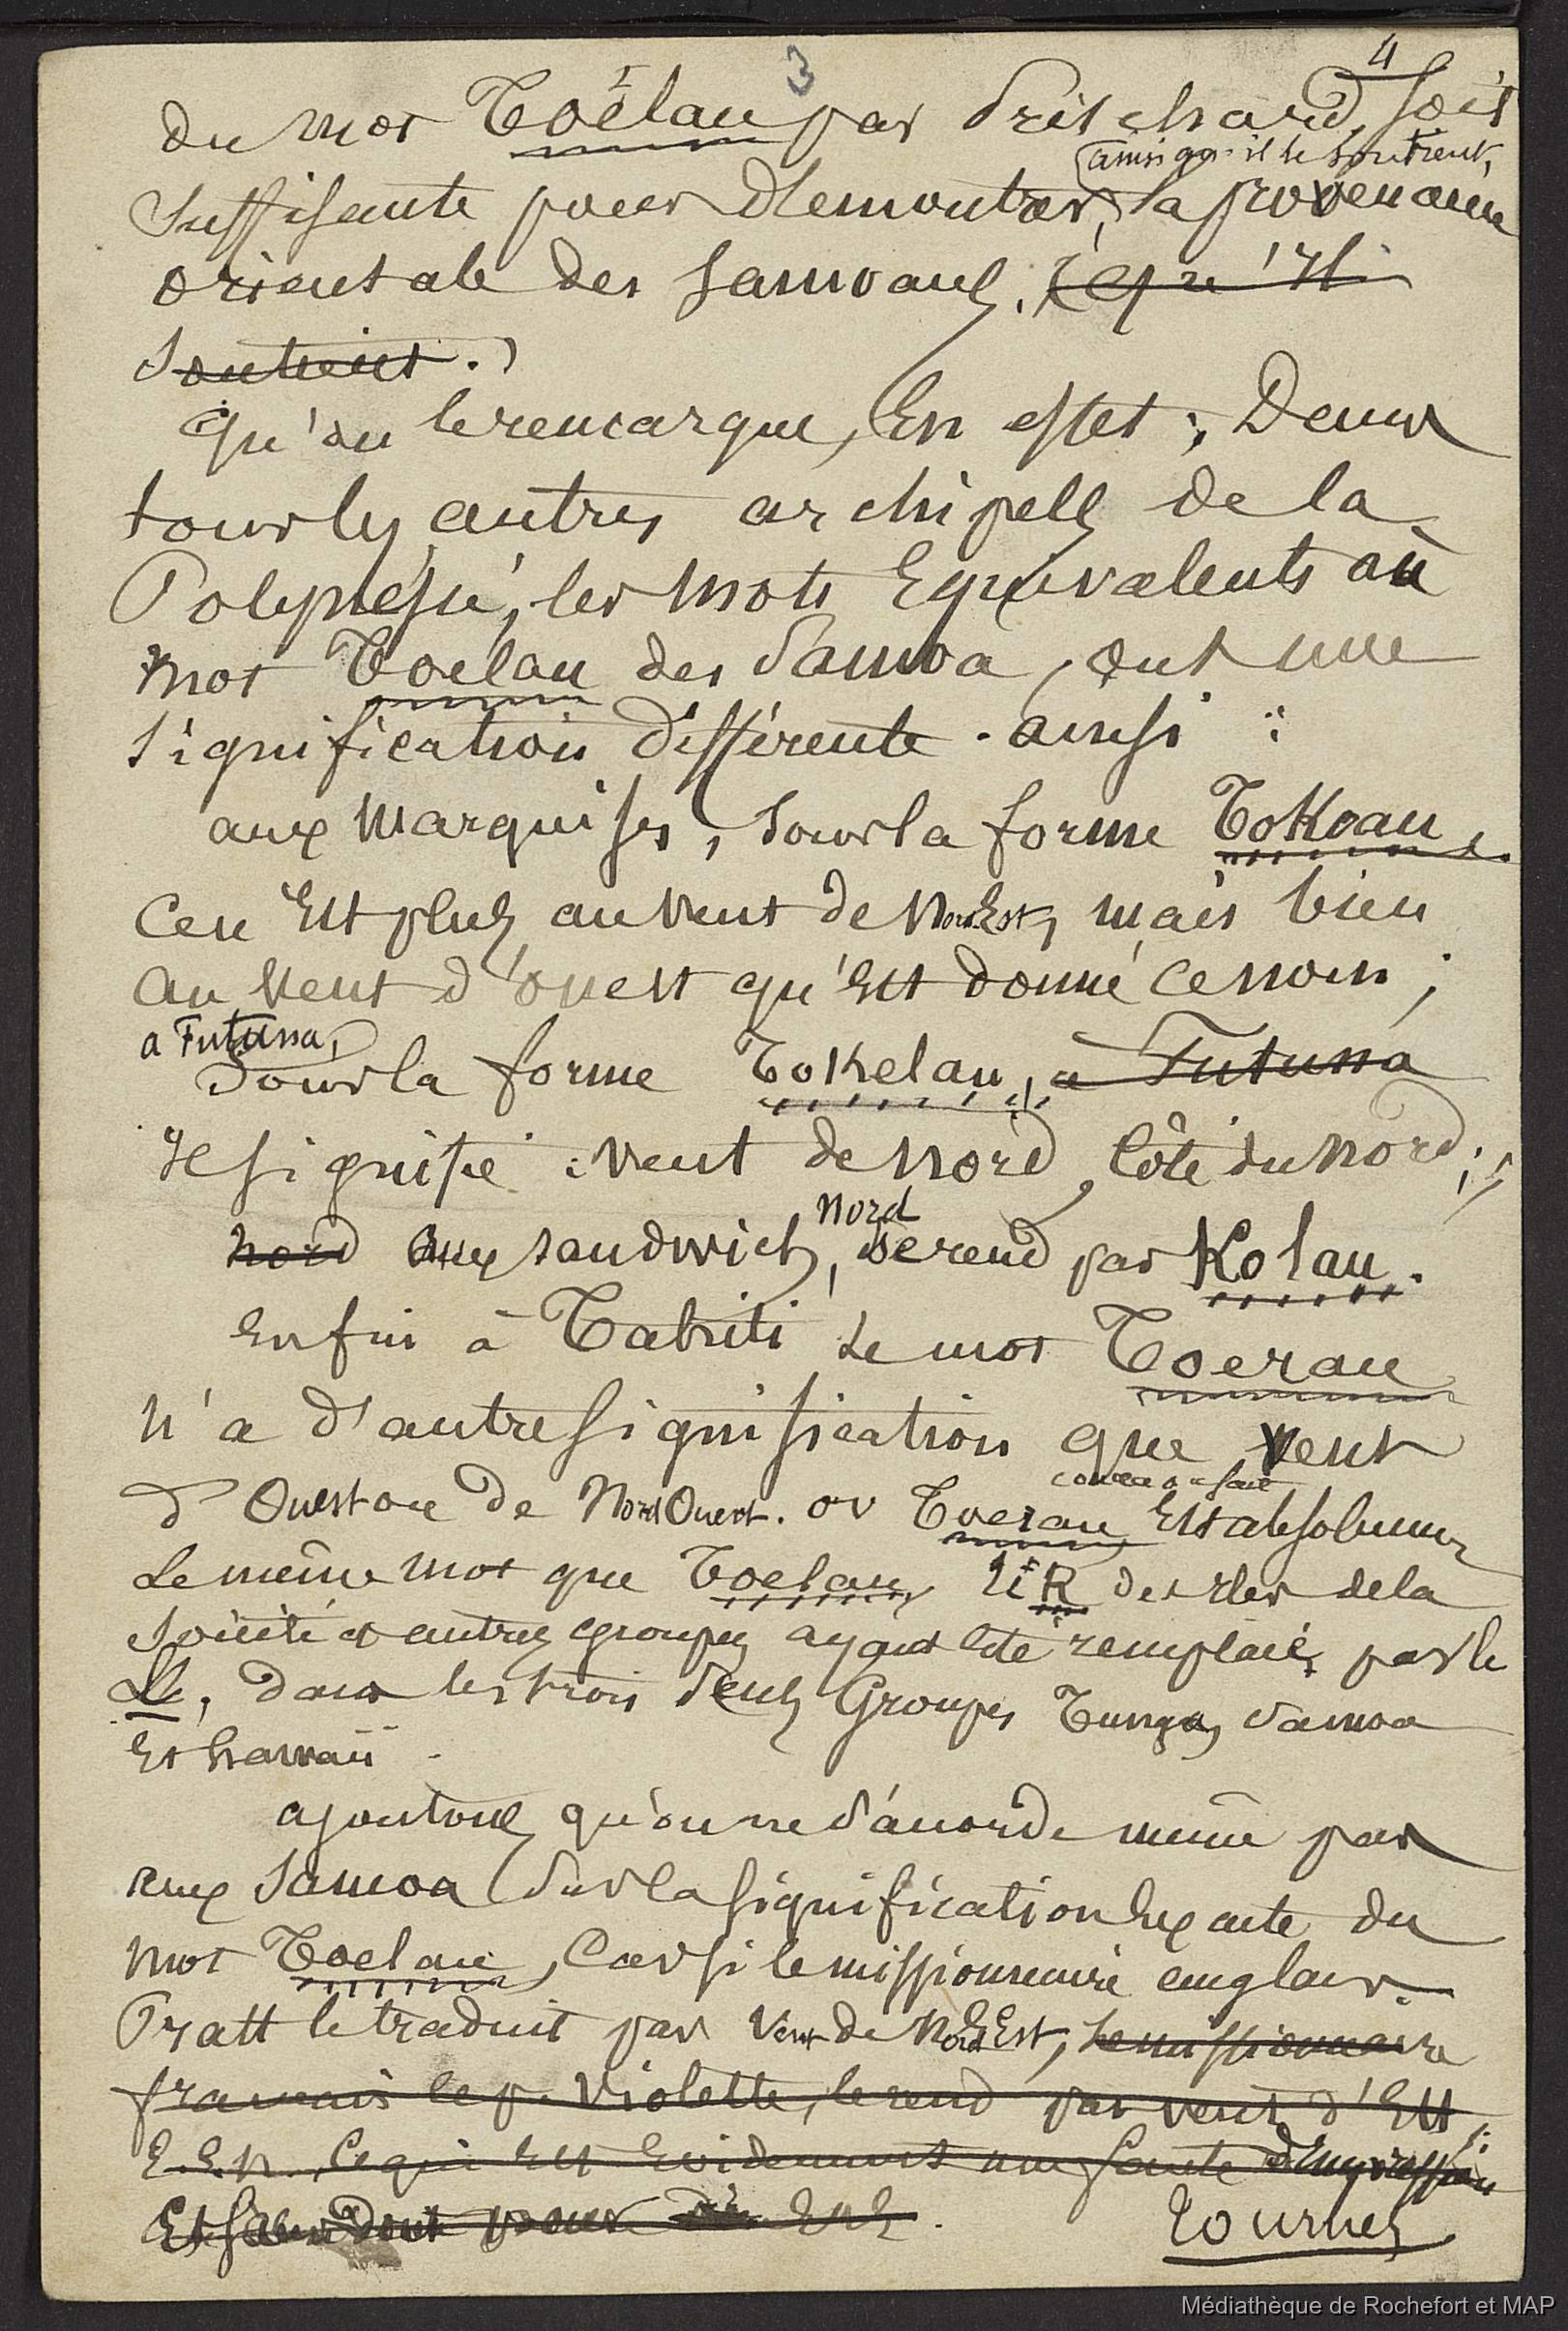 3
4
du mot Toëlau par Pritchard, soit
ainsi qu'il le soutient,
suffisante pour démontrer, la provenance
orientale des Samoans. (qu'il
soutient.)
Qu'on le remarque, en effet ; Dans
tous les autres archipels de la
Polynésie, les mots équivalents au
mot Toelau des Samoa, ont une
signification différente. ainsi :
aux Marquises, sous la forme Tokoau,
ce n'est plus au vent de Nord Est, mais bien
au vent d'ouest qu'est donné ce nom ;
a Futuna,
sous la forme Tokelau, a Futuna
il signifie : vent de nord, côté du nord ;
nord
nord aux Sandwich, se rend par Kolau.
Enfin à Tahiti le mot Toerau
n'a d'autre signification que vent
d'Ouest ou de Nord Ouest. or Toerau est absolument
le même mot que Toelau, l'R des Iles de la
Société et autres groupes ayant été remplacé, par le
L, dans les trois seuls Groupes Tunga, Samoa
et hawaii.
ajoutons qu'on ne s'accorde même pas
aux Samoa sur la signification exacte du
mot Toelau, car si le missionnaire anglais
Pratt le traduit par vent de Nord Est, le missionnaire
francais le p. Violette, le rend par vent d'Est
E.E.N. ce qui est évidemment une faute d'impression
Tournez